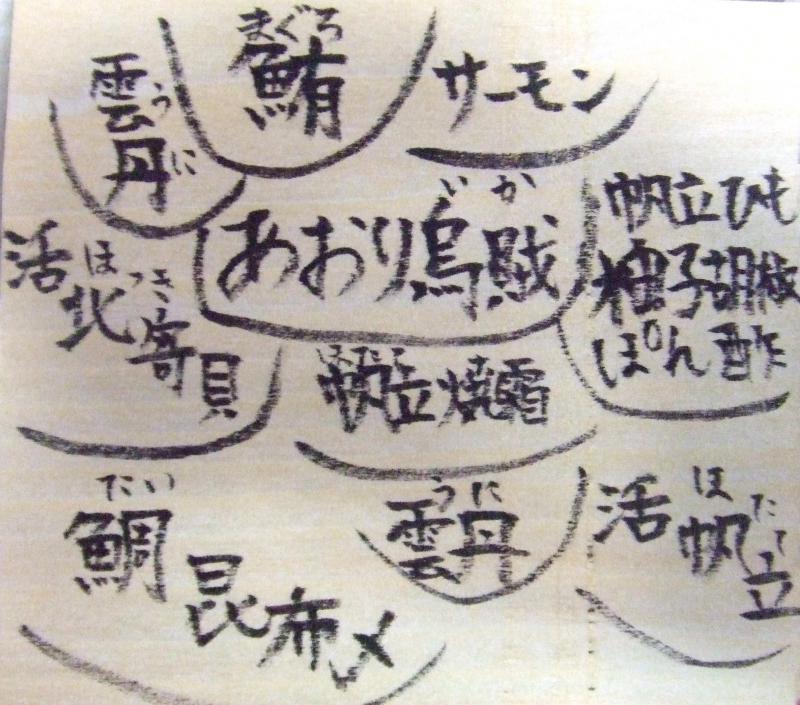 まぐろ
鮪
サーモン
うに
雲丹
いか
あおり烏賊
帆立ひも
柚子胡椒
ぽん酢
ほっき
活北寄貝
帆立焼霜
たい
鯛昆布〆
うに
雲丹
ほたて
活帆立